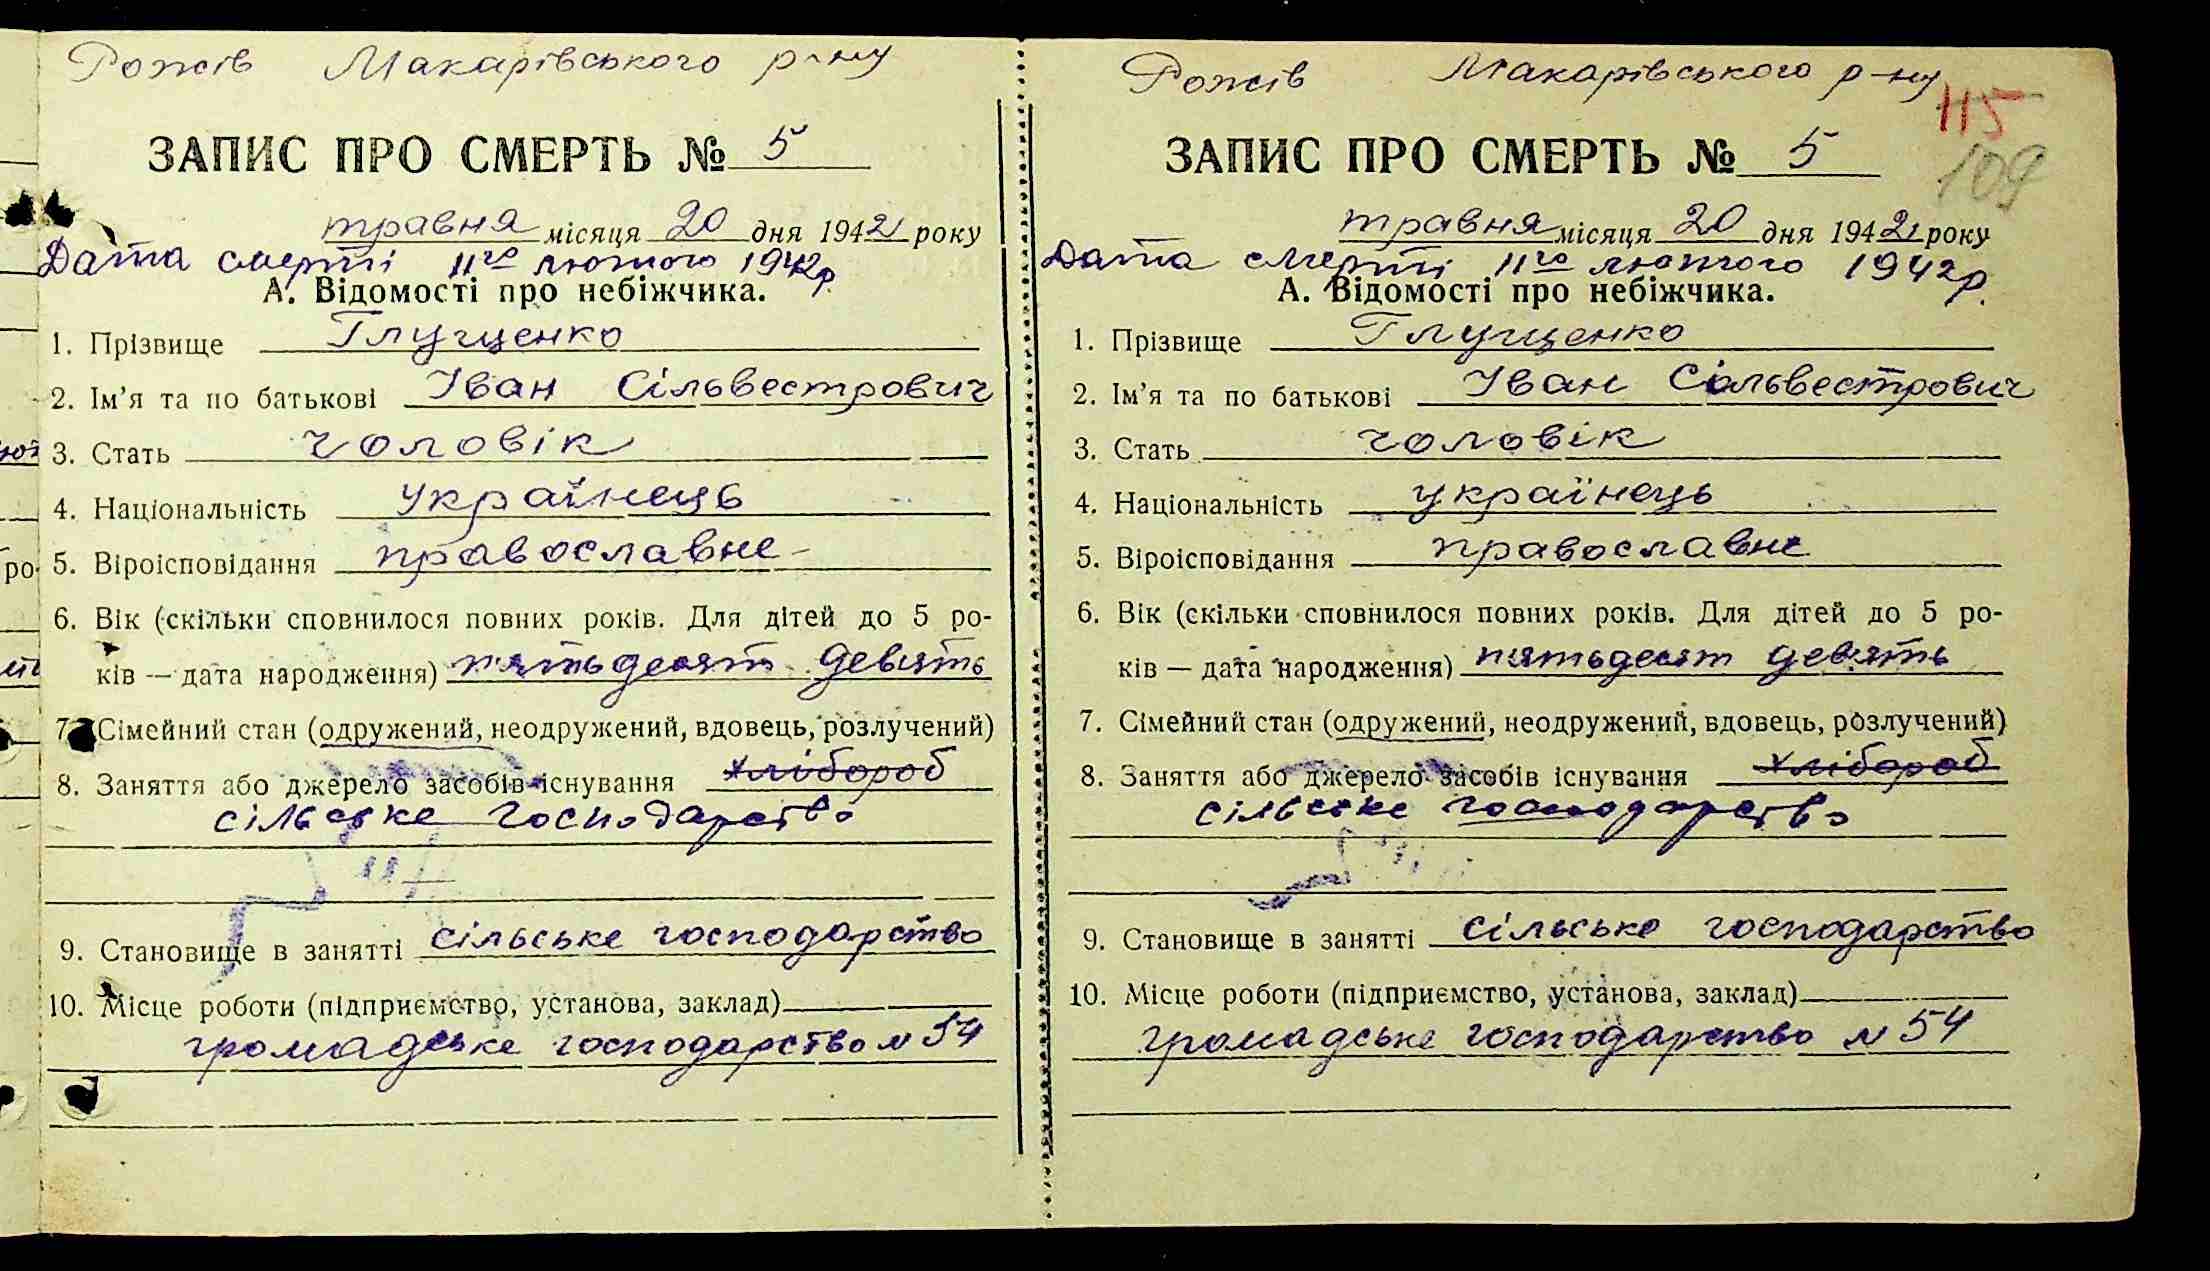 Рожів Макарівського р-ну
ЗАПИС ПРО СМЕРТЬ № 5
травня місяця 20 дня 1942 року
Дата смерті 11го лютого 1942р.
А. Відомості про небіжчика.
1. Прізвище Глущенко
2. Ім’я та по батькові Іван Сільвестрович
3. Стать чоловік
4. Національність українець
5. Віроісповідання православне
6. Вік (скільки сповнилося повних років. Для дітей до 5 ро-
ків — дата народження) п'ятьдесят девять
7. Сімейний стан (одружений, неодружений, вдовець, розлучений)
8. Заняття або джерело засобів існування хлібороб
сільське господарство
— " —
9. Становище в занятті сільське господарство
10. Місце роботи (підприємство, установа, заклад)
громадське господарство № 54
Рожів Макарівського р-ну
115
ЗАПИС ПРО СМЕРТЬ № 5
109
травня місяця 20 дня 1942 року
Дата смерті 11го лютого 1942р.
А. Відомості про небіжчика.
1. Прізвище Глущенко
2. Ім’я та по батькові Іван Сільвестрович
3. Стать чоловік
4. Національність українець
5. Віроісповідання православне
6. Вік (скільки сповнилося повних років. Для дітей до 5 ро-
ків — дата народження) п'ятьдесят девять
7. Сімейний стан (одружений, неодружений, вдовець, розлучений)
8. Заняття або джерело засобів існування хлібороб
сільське господарство
9. Становище в занятті сільське господарство
10. Місце роботи (підприємство, установа, заклад)
громадське господарство № 54